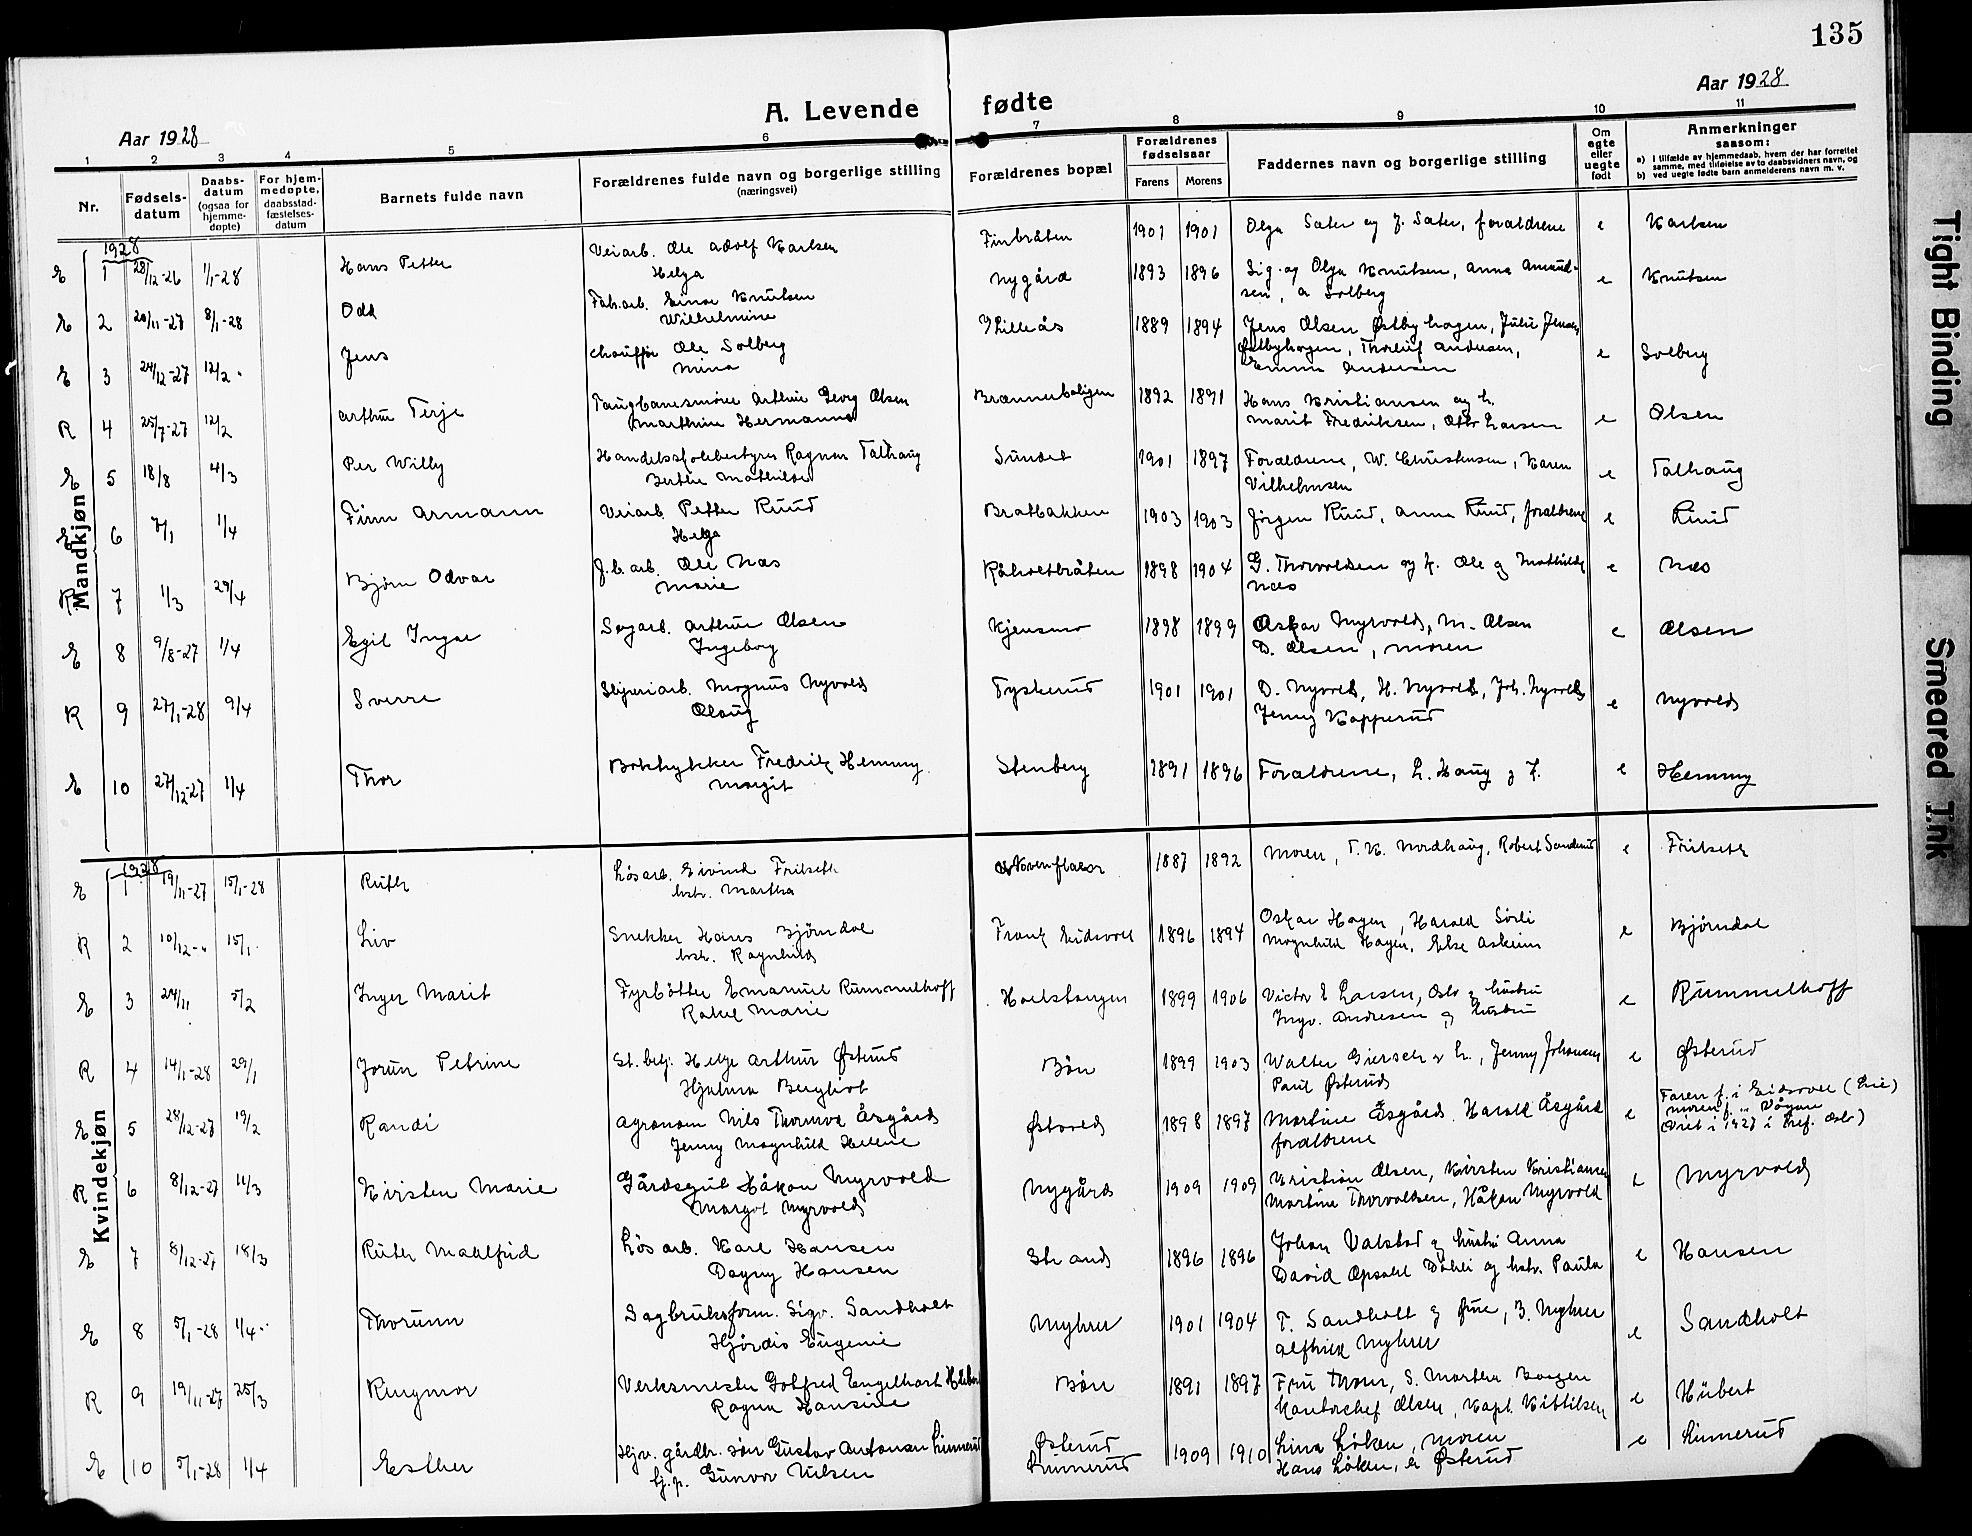 135
Aar 1928
A. Levende fødte
Aar 1928
1 2 3 4 5 6 7 8 9 10 11
Nr.
Fødsels-
datum
Daabs-
datum
(ogsaa for
hjemme-
døpte)
For hjem-
medøpte,
daabsstad-
fæstelses-
datum
Barnets fulde navn
Forældrenes fulde navn og borgerlige stilling
(næringsvei)
Forældrenes bopæl
Forældrenes
fødselsaar
Farens Morens
Faddernes navn og borgerlige stilling
Om
egte
eller
uegte
født
Anmerkninger
saasom:
a) I tilfælde av hjemmedaab, hvem der har forrettet
samme, med tilføielse av to daabsvidners navn, og
b) ved uegte fødte barn anmelderens navn m. v.
Mandkjøn
1928
E 1 28/12-26 1/1-28 Hans Petter Veiarb. Ole Adolf Karlsen Finbråten 1901 1901 Olga Sater og J. Sater, foraldrene e Karlsen
Helga
E 2 20/11-27 8/1-28 Odd Fab.arb. Einar Knutsen Nygård 1893 1896 Sig. og Olga Knutsen, Anna Amund-
Wilhelmine
sen, A Solberg e Knutsen
E 3 24/12-27 12/2 Jens Chauffør Ole Solberg Lilleås 1889 1894 Jens Olsen Østbyhagen, Julie Jensen
Mina
Østbyhagen, Thorleif Andersen, e Solberg
Emma Andersen
R 4 25/7-27 12/2 Arthur Terje Taugbanesmører Arthur Georg Olsen Brænnerboligen 1892 1891 Hans Kristiansen og h.
Marthine Hermanna
Marit Fredriksen, Otto Larsen e Olsen
E 5 18/8 4/3 Per Willy Handelsfuldbestyrer Ragnar Talhaug Sundet 1901 1897 Foraldrene, W. Christensen, Karen
Berthe Mathilde
Vilhelmsen e Talhaug
E 6 7/1 1/4 Finn Armann Veiarb. Petter Ruud Bratbakken 1903 1903 Jørgen Ruud, Anna Ruud, foraldrene e Ruud
Helga
R 7 1/3 29/4 Bjørn Odvar J.b.arb. Ole Næs Råholtbråten 1898 1904 G. Thorvaldsen og f. Ole og Mathilde e Næs
Marie
Næs
E 8 9/8-27 1/4 Egil Ingar Sagarb. Arthur Olsen Kjensmo 1898 1899 Oskar Myrvold, M. Olsen e Olsen
Ingeborg
D. Olsen, moren
R 9 27/1-28 9/4 Sverre Sliperiarb. Magnus Nyvold Tyskerud 1901 1901 D. Nyvold, H. Nyvold, Joh. Nyvold e Nyvold
Olaug
Jenny Kopperud
E 10 27/12-27 1/4 Thor Boktrykker Fredrik Hemmy Stenberg 1891 1896 Foraldrene, L. Haug g f. e Hemmy
Margit
Kvindekjøn
1928
E 1 19/11-27 15/1-28 Ruth Løsarb. Eivind Fritseth 1887 1892 Moren, T. K. Nordhaug, Robert Sanderud e Fritseth
hstr. Martha
R 2 10/12-" 15/1 Liv Snekker Hans Bjørndal Eidsvoll 1896 1894 Oskar Hagen, Harald Sørli e Bjørndal
hstr. Ragnhild
Magnhild Hagen, Else Askeim
E 3 24/11 5/2 Inger Marit Fyrbøtter Emanuel Rummelhoff Holstangen 1899 1906 Victor E Larsen, Oslo g hustru e Rummelhoff
Rakel Marie
Ingv. Andresen g hustru
R 4 14/1-28 29/1 Jorun Petrine St.betj. Helge Arthur Østerud Bøn 1899 1903 Walter Giersch & h., Jenny Johansen e Østerud
Hjalma Berghist
Paul Østerud
E 5 28/12-27 19/2 Randi Agronom Nils Thormod Åsgård Østvold 1898 1897 Martine Åsgård. Harald Åsgård e Faren f. i Eidsvoll (Lie)
Jenny Magnhild Helene
foraldrene
moren f. " Vågan
Viet i 1927 i Oslo)
R 6 8/12-27 11/3 Kirsten Marie Gårdsgut Håkon Myrvold Nygård 1909 1909 Kristian Olsen, Kirsten Kristiansen e Myrvold
Margot Myrvold
Martine Thorvaldsen, Håkon Myrvold
E 7 8/12-27 18/3 Ruth Mahlfrid Løsarb. Karl Hansen Strand 1896 1896 Johan Valstad g hustru Anna e Hansen
Dagny Hansen
David Opsahl Dahli og hstr. Paula
E 8 5/1-28 1/4 Thorunn Sagbruksform. Sigv. Sandholt Myhrer 1901 1904 T. Sandholt g frue, B. Myhrer e Sandholt
Hjørdis Eugenie
Alfhild Myhrer
R 9 19/11-27 25/3 Rugmor Verksmester Gotfred Engelhart Hübert Bøn 1891 1897 Fru Thom, S. Martha Borgen e Hübert
Ragna Hansine
Kontorchef Olsen, Kapt. Kittilsen
E 10 5/1-28 1/4 Esther Hjv. gårdbr. søn Gustav Antonsen Linnerud Østerud 1909 1910 Lina Løken, moren e Linnerud
tj.p. Gunvor Nilsen Linnerud
Hans Løken, Østerud
Tight Binding
Smeared Ink